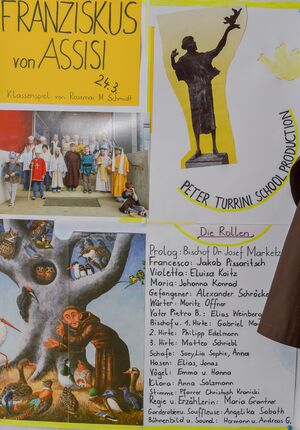 FRANZISKUS
von ASSISI
24.3.
Klassenspiel von Rosemai M. Schmidt
PETER TURRINI SCHOOL PRODUCTION
Die Rollen
Prolog: Bischof Dr. Josef Marketz
Francesco: Jakob Pissaritsch
Violetta: Eluisa Koitz
Maria: Johanna Konrad
Gefangener: Alexander Schröcke
Wärter: Moritz Offner
Vater Pietro B.: Elias Weinberg
Bischof u. 1. Hirte: Gabriel
2. Hirte: Philipp Edelmann
3. Hirte: Matteo Schriebl
Schafe: Soey, Lia Sophie, Anna
Hasen: Elias, Jonas
Vögel: Emma u. Hanna
Klara: Anna Salzmann
Stimme: Pfarrer Christoph Kranicki
Regie u. Erzählerin: Maria Grantner
Garderobe u. Souffleuse: Angelika Sabath
Bühnenbild u. Sound: Hermann u. Andreas G.